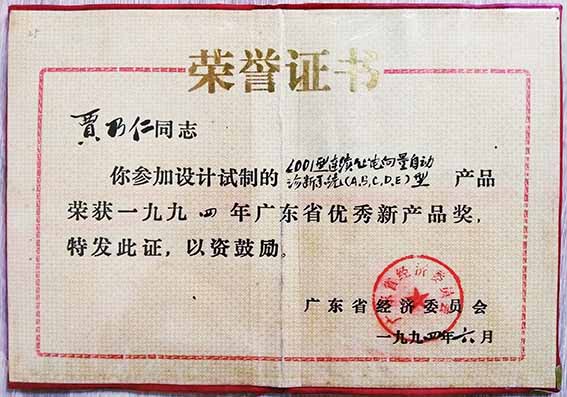 荣誉证书
贾乃仁同志
你参加设计试制的
LOO1型连续心电向量自动
诊断系统(A,B,C,D,E)型
产品
荣获一九九四年广东省优秀新产品奖,
特发此证,以资鼓励。
广东省经济委员会
广东省经济委员会
一九九四年六月